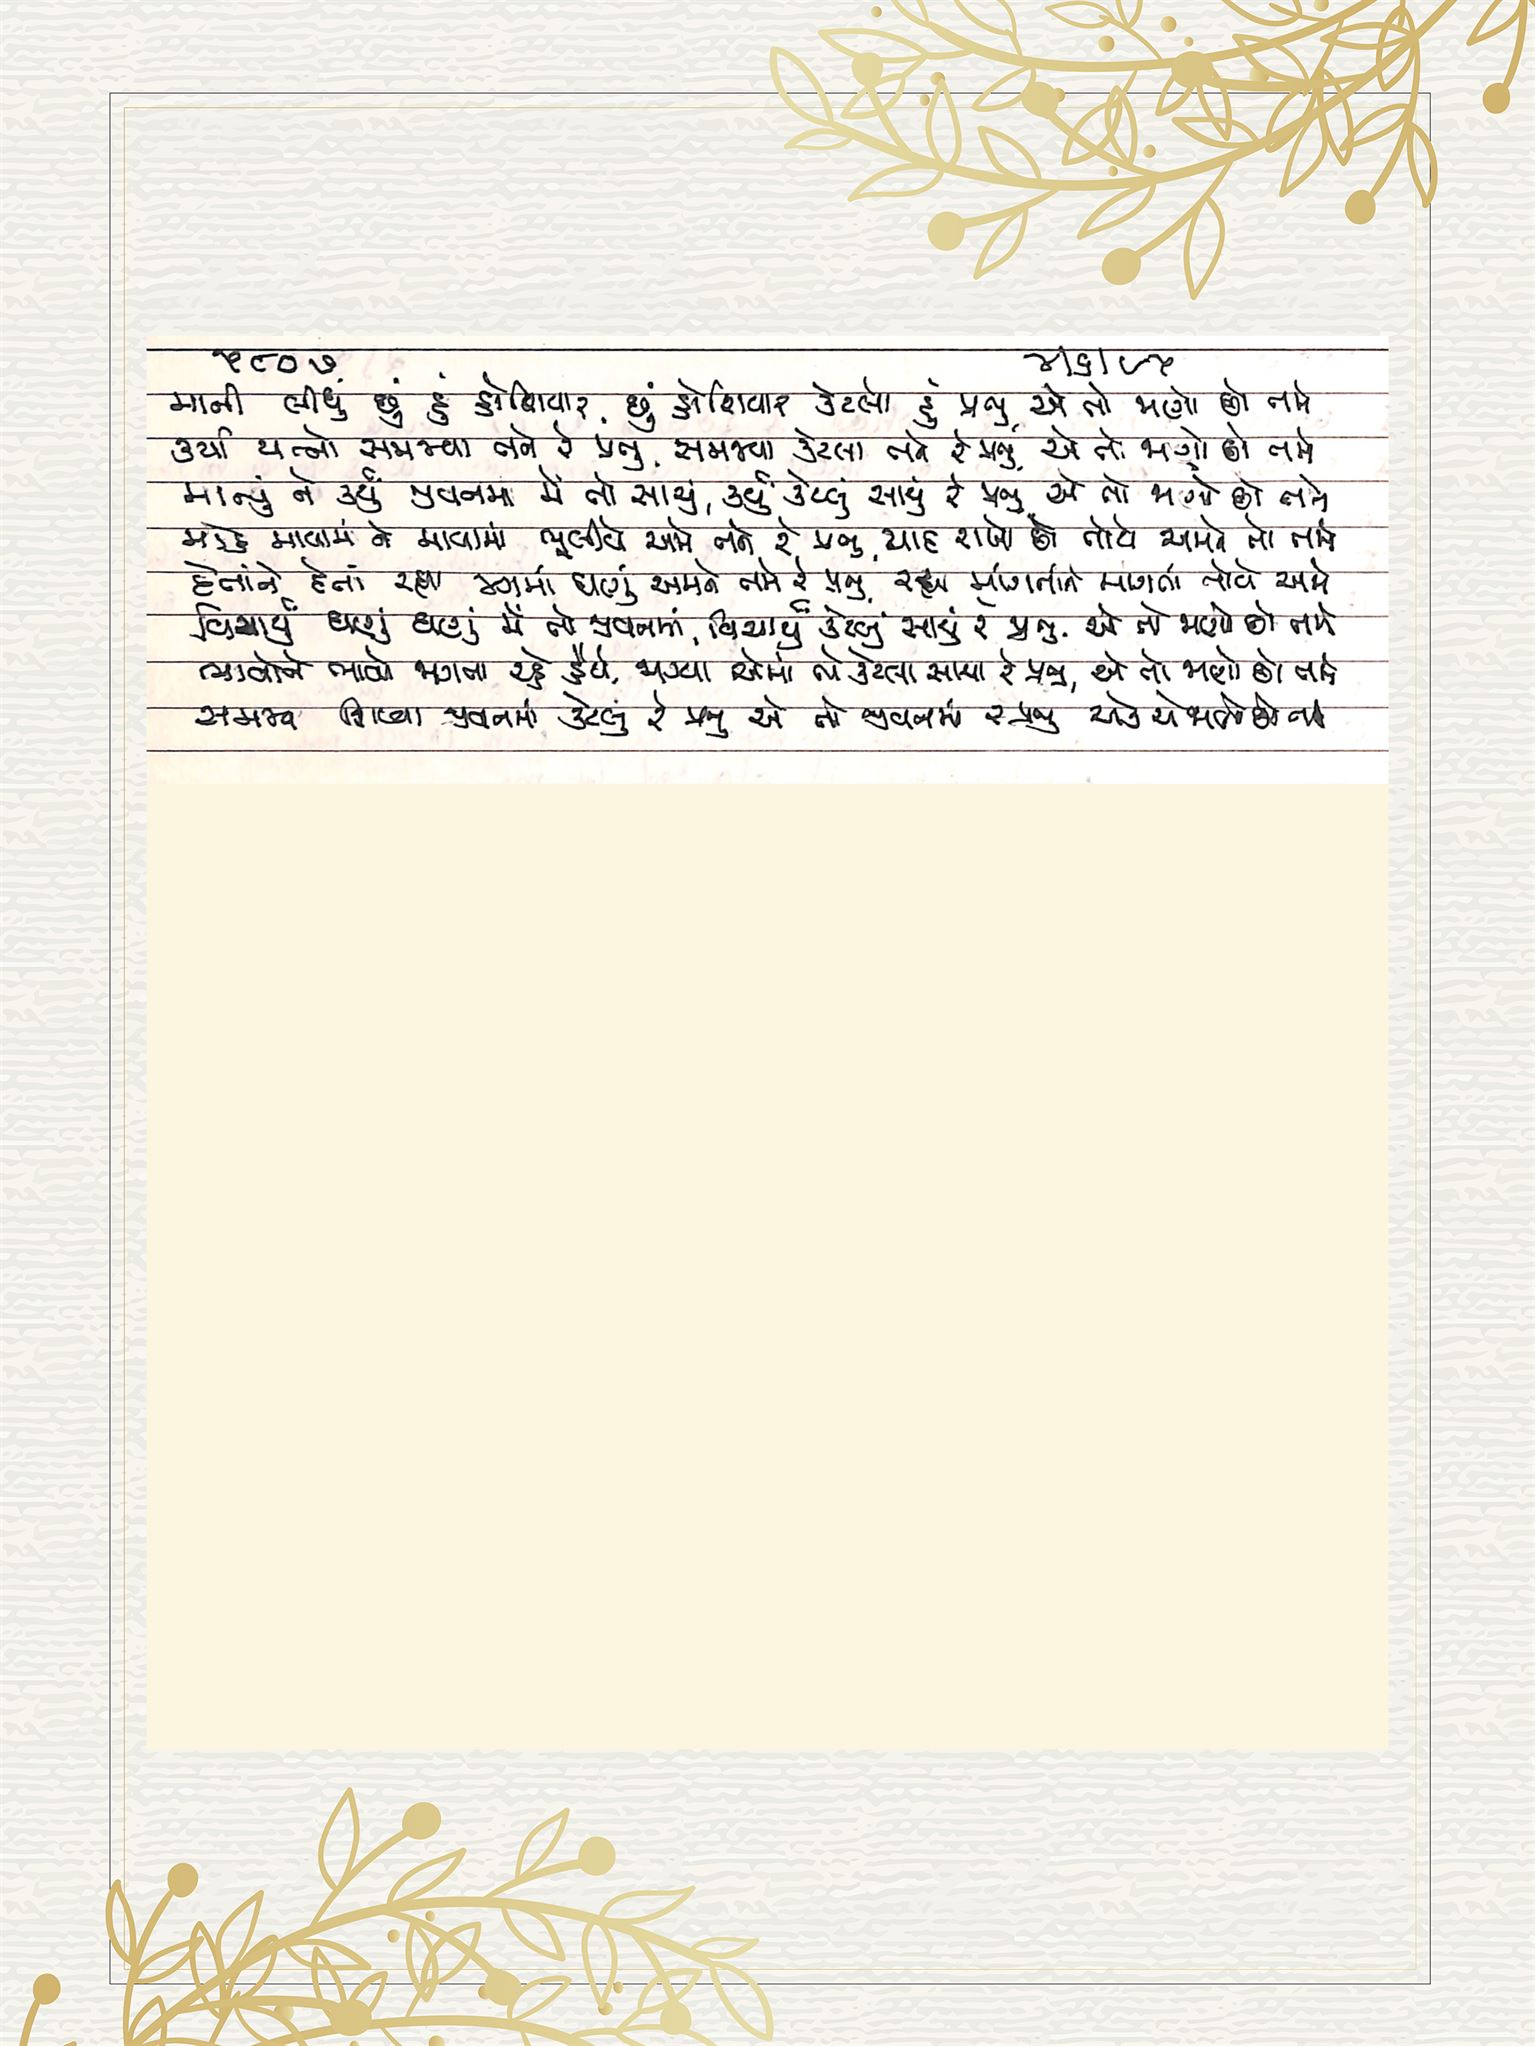 ૫૮૦૭ ૪/૬/૯૫
માની લીધું છું હું હોશિયાર, છું હોશિયાર કેટલો હું પ્રભુ, એ તો જાણો છો તમે
કર્યા યત્નો સમજવા તને રે પ્રભુ, સમજ્યા કેટલા તને રે પ્રભુ, એ તો જાણો છો તમે
માન્યું ને કર્યું જીવનમાં મેં તો સાચું, કર્યું કેટલું સાચું રે પ્રભુ, એ તો જાણો છો તમે
માયામાં ને માયામાં ભૂલીયે અમે તને રે પ્રભુ, યાદ રાખો છો તોયે અમને તો તમે
દેતાંને દેતાં રહ્યા જગમાં ઘણું અમને તમે રે પ્રભુ, રહ્યા માંગતાને માંગતા તોયે અમે
વિચાર્યું ઘણું ઘણું મેં તો જીવનમાં, વિચાર્યું કેટલું સાચું રે પ્રભુ, એ તો જાણો છો તમે
ભાવોને ભાવો જાગતા રહે હૈયે, જાગ્યા એમાં કેટલા સાચા રે પ્રભુ, એ તો જાણો છો તમે
સમજી જીવનમાં કેટલું રે પ્રભુ એ તો જીવનમાં રે પ્રભુ જાણો છો તમે